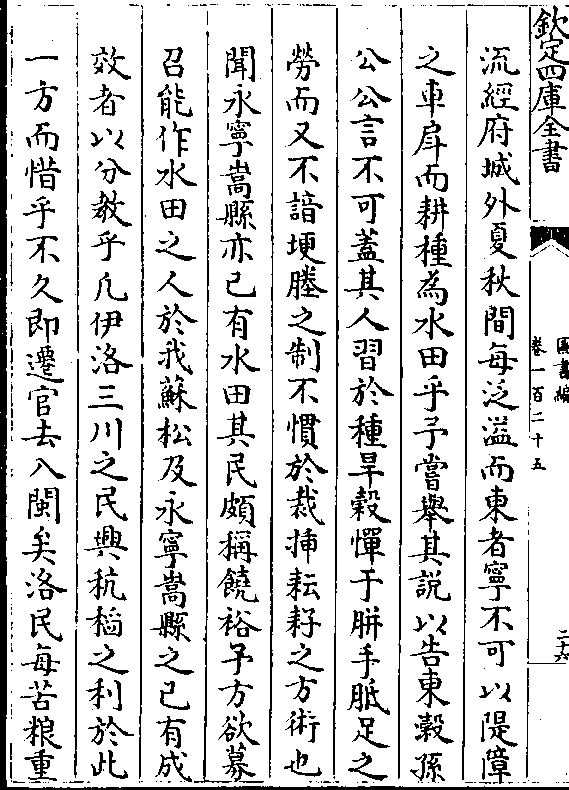 欽定四庫全書
圖書編
卷一百二十五
二十六
流經府城外夏秋間每泛溢而東者寧不可以隄障
之車戽而耕種為水田乎予嘗舉其説以告東穀孫
公公言不可蓋其人習於種旱穀憚于胼手胝足之
勞而又不諳埂塍之制不慣於裁揷耘耔之方術也
聞永寧嵩縣亦已有水田其民頗稱饒裕予方欲募
召能作水田之人於我蘇松及永寧嵩縣之已有成
效者以分教乎凡伊洛三川之民興秔稻之利於此
一方而惜乎不久即遷官去入閩矣洛民每苦粮重